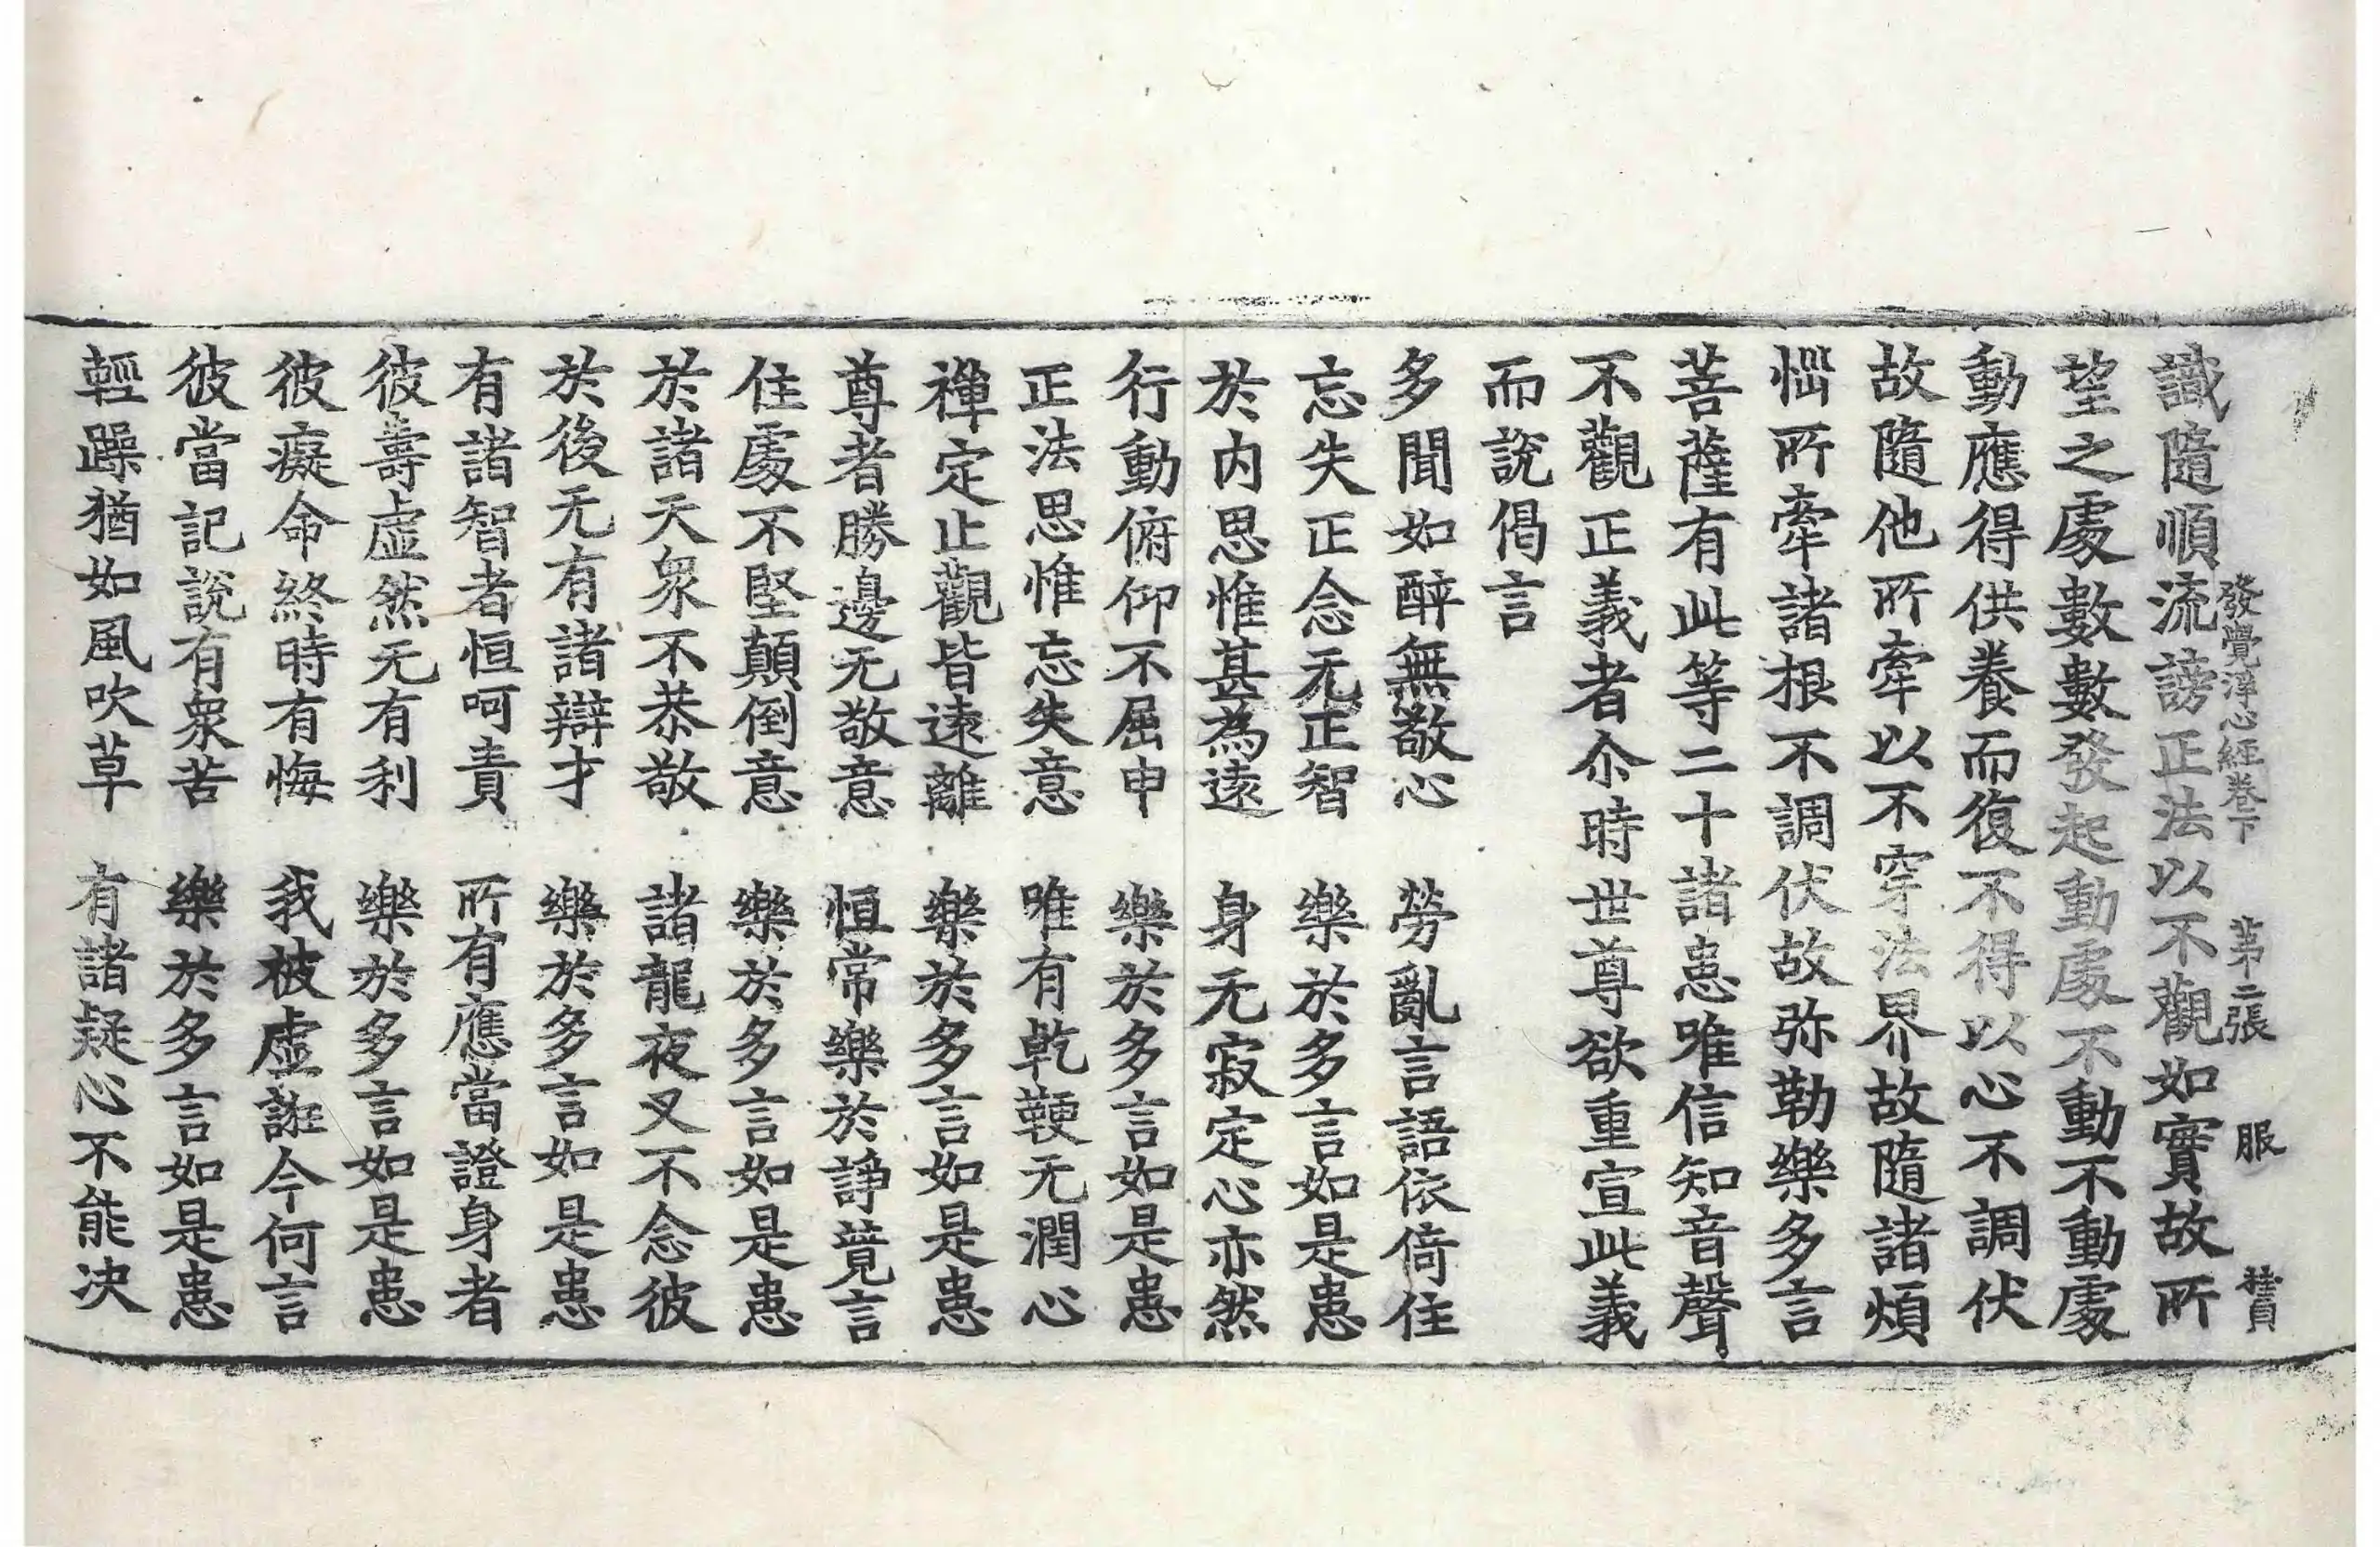 發覺淨心經卷下 苐二張 服
識隨順流謗正法以不觀如實故所
望之處數數發起動處不動不動處
動應得供養而復不得以心不調伏
故隨他所牽以不穿法界故隨諸煩
惱所牽諸根不調伏故弥勒樂多言
菩薩有此等二十諸患唯信知音聲
不觀正義者尒時世尊欲重宣此義
而說偈言
多聞如醉無敬心 勞亂言語依倚住
忘失正念无正智 樂於多言如是患
於内思惟甚為遠 身无寂定心亦然
行動俯仰不屈申 樂於多言如是患
正法思惟忘失意 唯有乾鞕无潤心
禪定止觀皆遠離 樂於多言如是患
尊者勝邊无敬意 恒常樂於諍競言
住處不堅顛倒意 樂於多言如是患
於諸天衆不恭敬 諸龍夜叉不念彼
於後无有諸辯才 樂於多言如是患
有諸智者恒呵責 所有應當證身者
彼壽虛然无有利 樂於多言如是患
彼癡命終時有悔 我被虛誑今何言
彼當記說有衆苦 樂於多言如是患
輕躁猶如風吹草 有諸疑心不能决